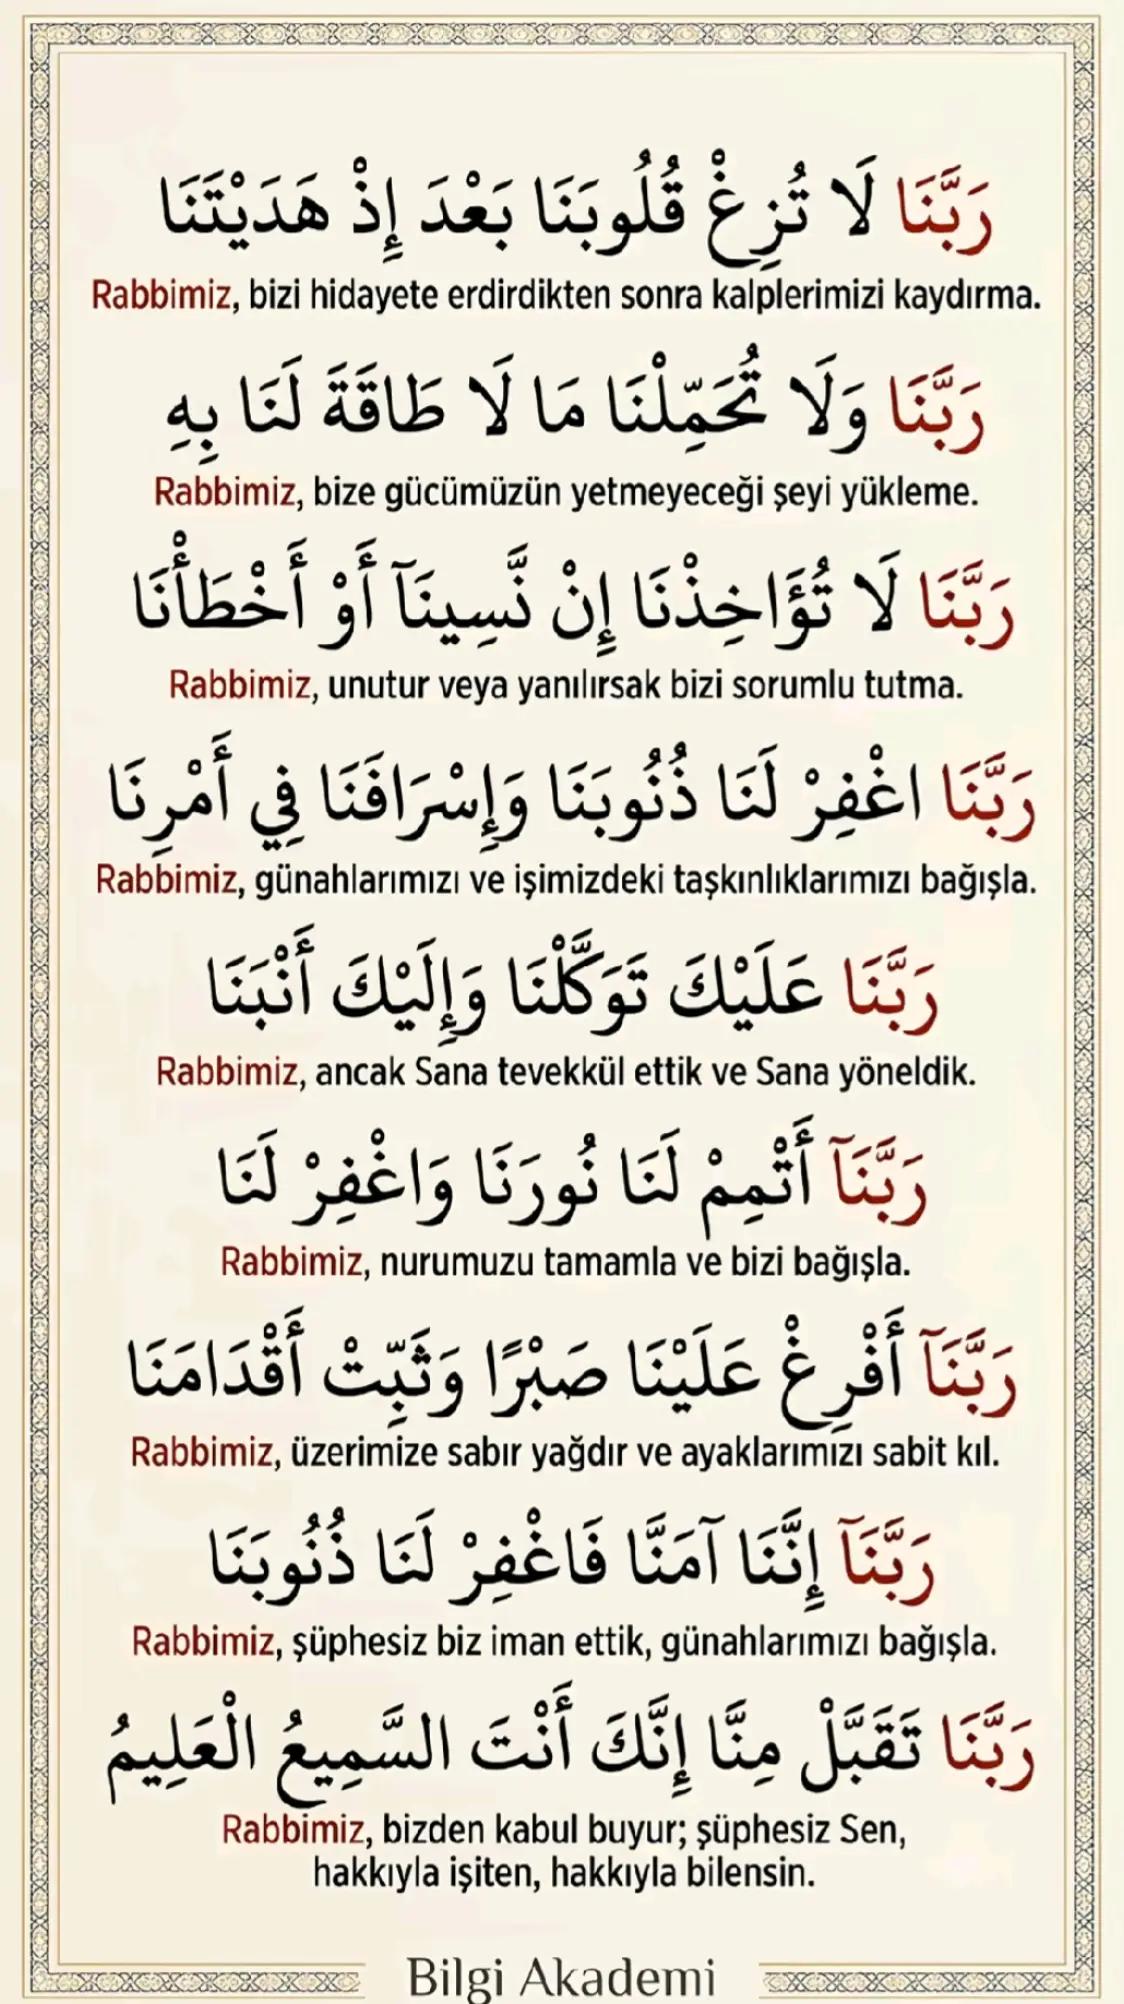 رَبَّنَا لَا تُزِغْ قُلُوبَنَا بَعْدَ إِذْ هَدَيْتَنَا
Rabbimiz, bizi hidayete erdirdikten sonra kalplerimizi kaydırma.
رَبَّنَا وَلَا تُحَمِّلْنَا مَا لَا طَاقَةَ لَنَا بِهِ
Rabbimiz, bize gücümüzün yetmeyeceği şeyi yükleme.
رَبَّنَا لَا تُؤَاخِذْنَا إِنْ نَّسِينَآ أَوْ أَخْطَأْنَا
Rabbimiz, unutur veya yanılırsak bizi sorumlu tutma.
رَبَّنَا اغْفِرْ لَنَا ذُنُوبَنَا وَإِسْرَافَنَا فِي أَمْرِنَا
Rabbimiz, günahlarımızı ve işimizdeki taşkınlıklarımızı bağışla.
رَبَّنَا عَلَيْكَ تَوَكَّلْنَا وَإِلَيْكَ أَنْبَنَا
Rabbimiz, ancak Sana tevekkül ettik ve Sana yöneldik.
رَبَّنَآ أَتْمِمْ لَنَا نُورَنَا وَاغْفِرْ لَنَا
Rabbimiz, nurumuzu tamamla ve bizi bağışla.
رَبَّنَآ أَفْرِغْ عَلَيْنَا صَبْرًا وَثَبِّتْ أَقْدَامَنَا
Rabbimiz, üzerimize sabır yağdır ve ayaklarımızı sabit kıl.
رَبَّنَآ إِنَّنَا آمَنَّا فَاغْفِرْ لَنَا ذُنُوبَنَا
Rabbimiz, şüphesiz biz iman ettik, günahlarımızı bağışla.
رَبَّنَا تَقَبَّلْ مِنَّا إِنَّكَ أَنْتَ السَّمِيعُ الْعَلِيمُ
Rabbimiz, bizden kabul buyur; şüphesiz Sen,
hakkıyla işiten, hakkıyla bilensin.
Bilgi Akademi